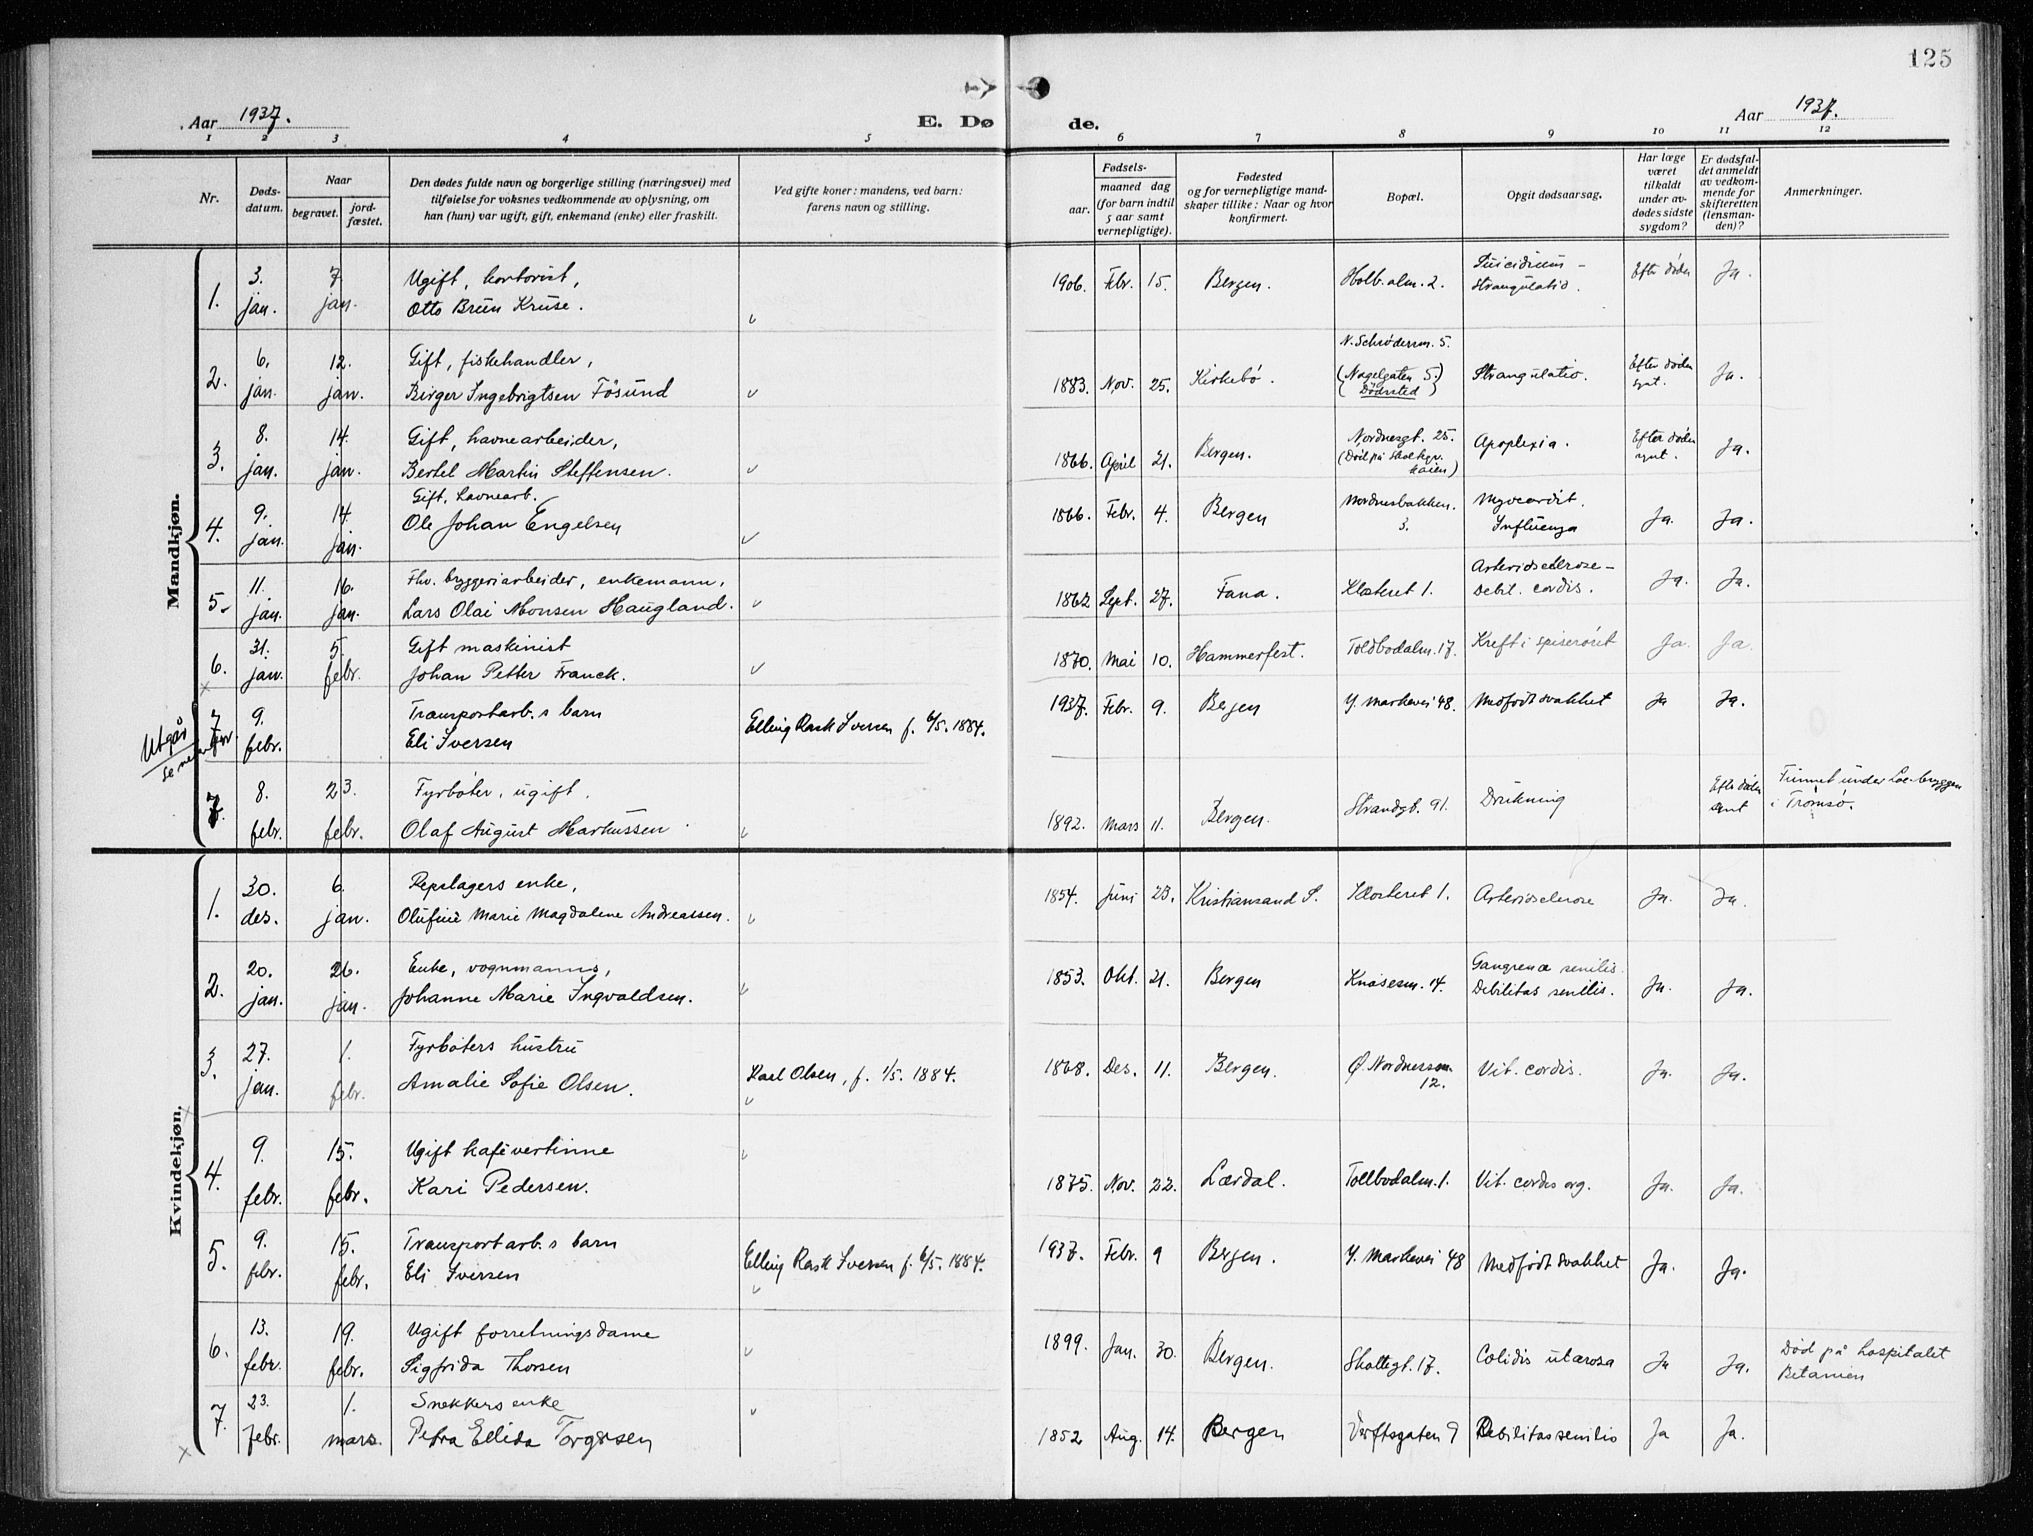 125
Aar 1937.
E. Døde.
Aar 1937.
1 2 3 4 5 6 7 8 9 10 11 12
Nr.
Døds-
datum.
Naar
begravet.
jord-
fæstet.
Den dødes fulde navn og borgerlige stilling (næringsvei) med
tilføielse for voksnes vedkommende av oplysning, om
han (hun) var ugift, gift, enkemand (enke) eller fraskilt.
Ved gifte koner: mandens, ved barn:
farens navn og stilling.
Fødsels-
aar.
maaned dag
(for barn indtil
5 aar samt
vernepligtige).
Fødested
og for vernepligtige mand-
skaper tillike: Naar og hvor
konfirmert.
Bopæl.
Opgit dødsaarsag.
Har læge
været
tilkaldt
under av-
dødes sidste
sygdom?
Er dødsfal-
det anmeldt
av vedkom-
mende for
skifteretten
(lensman-
den)?
Anmerkninger.
Mandkjøn.
1. 3. jan. 7 jan. Ugift, kontorist,
Otto Brun Kruse.
1906. Febr. 15. Bergen. Holb.alm. 2. Suicidium -
strangulatio. Efter døden Ja.
2. 6. jan. 12. jan. Gift, fiskehandler,
Birger Ingebrigtsen Fösund
1883. Nov. 25. Kirkebö. N. Schröderm. 5.
(Nagelgaten 5.)
(Dödssted) Strangulatio. Efter døden
synt. Ja.
3. 8. jan. 14. jan. Gift, havnearbeider,
Bertel Martin Steffensen.
1866. April 21. Bergen. Nordnesgt. 25.
(Död på Skoltegr.
kaien) Apoplexia. Efter døden
synt. Ja.
4. 9. jan. 14. jan. Gift, havnearb.
Ole Johan Engelsen
1866. Febr. 4. Bergen Nordnesbakken.
3. Myocardit.
Influenza Ja. Ja.
5. 11. jan. 16. jan. Fhv. bryggeriarbeider, enkemann,
Lars Olai Monsen Haugland.
1862 Sept. 27. Fana. Klosteret 1. Arteriosclerose -
Debil. cordis. Ja. Ja.
6. 31. jan. 5. febr. Gift maskinist
Johan Petter Franck.
1870. Mai 10. Hammerfest. Toldbodalm. 17. Kreft i spiseröret Ja. Ja.
Utgår
se
7 9. febr. Transportarb.s barn
Eli Iversen Elling Rask Iversen f. 6/5. 1884.
1937. Febr. 9. Bergen Y. Markevei 48. Medfödt svakhet Ja Ja.
7. 8. febr. 23. febr. Fyrböter, ugift.
Olaf August Markussen
1892. Mars 11. Bergen. Strandgt. 91. Drukning Efter døden
synt Funnet under bryggen
i Tromsö.
Kvindekjøn.
1. 30. des. 6. jan. Repslagers enke,
Olufine Marie Magdalene Andreassen.
1854. Juni 23. Kristiansand S. Klosteret 1. Arteriosclerose Ja. Ja.
2. 20. jan. 26. jan. Enke, vognmanns,
Johanne Marie Ingvaldsen.
1853. Okt. 21. Bergen Knösesm. 14. Gangrenæ senilis.
Debilitas senilis. Ja. Ja.
3. 27. jan. 1. febr. Fyrböters hustru
Amalie Sofie Olsen. Karl Olsen, f. 1/5. 1884.
1868. Des. 11. Bergen. Ø. Nordnessm.
12. Vit. cordis. Ja. Ja.
4. 9. febr. 15. febr. Ugift kafévertinne
Kari Pedersen.
1875. Nov. 22. Lærdal. Tollbodalm. 1. Vit. cordis org. Ja. Ja.
5. 9. febr. 15. febr. Transportarb.s barn
Eli Iversen Elling Rask Iversen f. 6/5. 1884.
1937. Febr. 9 Bergen. Y. Markevei 48 Medfödt svakhet Ja. Ja.
6. 13. febr. 19. febr. Ugift forretningsdame
Sigfrida Thorsen
1899. Jan. 30. Bergen. Skottegt. 17. Colidis ulcerosa Ja Ja. Död på hospitalet
Betanien
7. 23. febr. 1. mars. Snekkers enke
Petra Ellida Torgersen
1852 Aug. 14. Bergen Verftsgaten 9 Debilitas senilis Ja Ja.